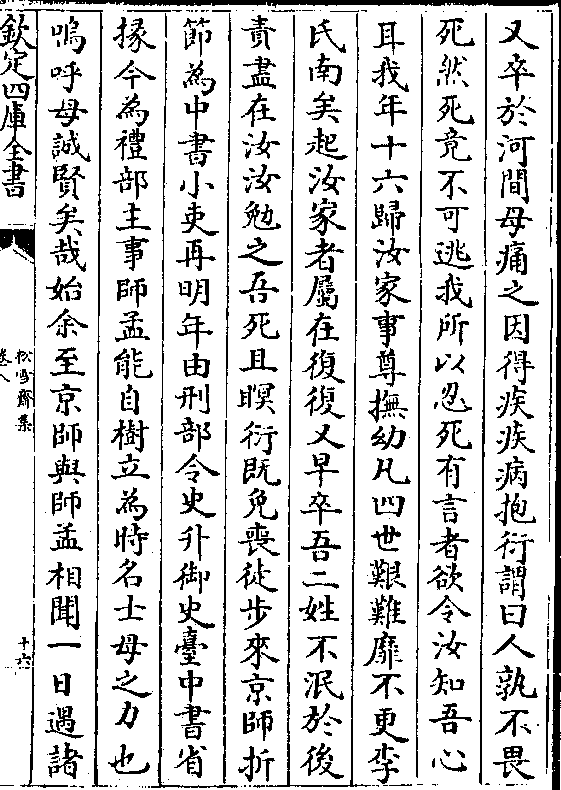 又卒於河間母痛之因得疾疾病抱衍謂曰人孰不畏
死然死竟不可逃我所以忍死有言者欲令汝知吾心
耳我年十六歸汝家事尊撫幼凡四世艱難靡不更李
氏南矣起汝家者屬在復復又早卒吾二姓不泯於後
責盡在汝汝勉之吾死且瞑衍既免喪徒步來京師折
節為中書小吏再明年由刑部令史升御史臺中書省
掾今為禮部主事師孟能自樹立為時名士母之力也
嗚呼母誠賢矣哉始余至京師與師孟相聞一日遇諸
欽定四庫全書
松雪齋集
卷八
十六